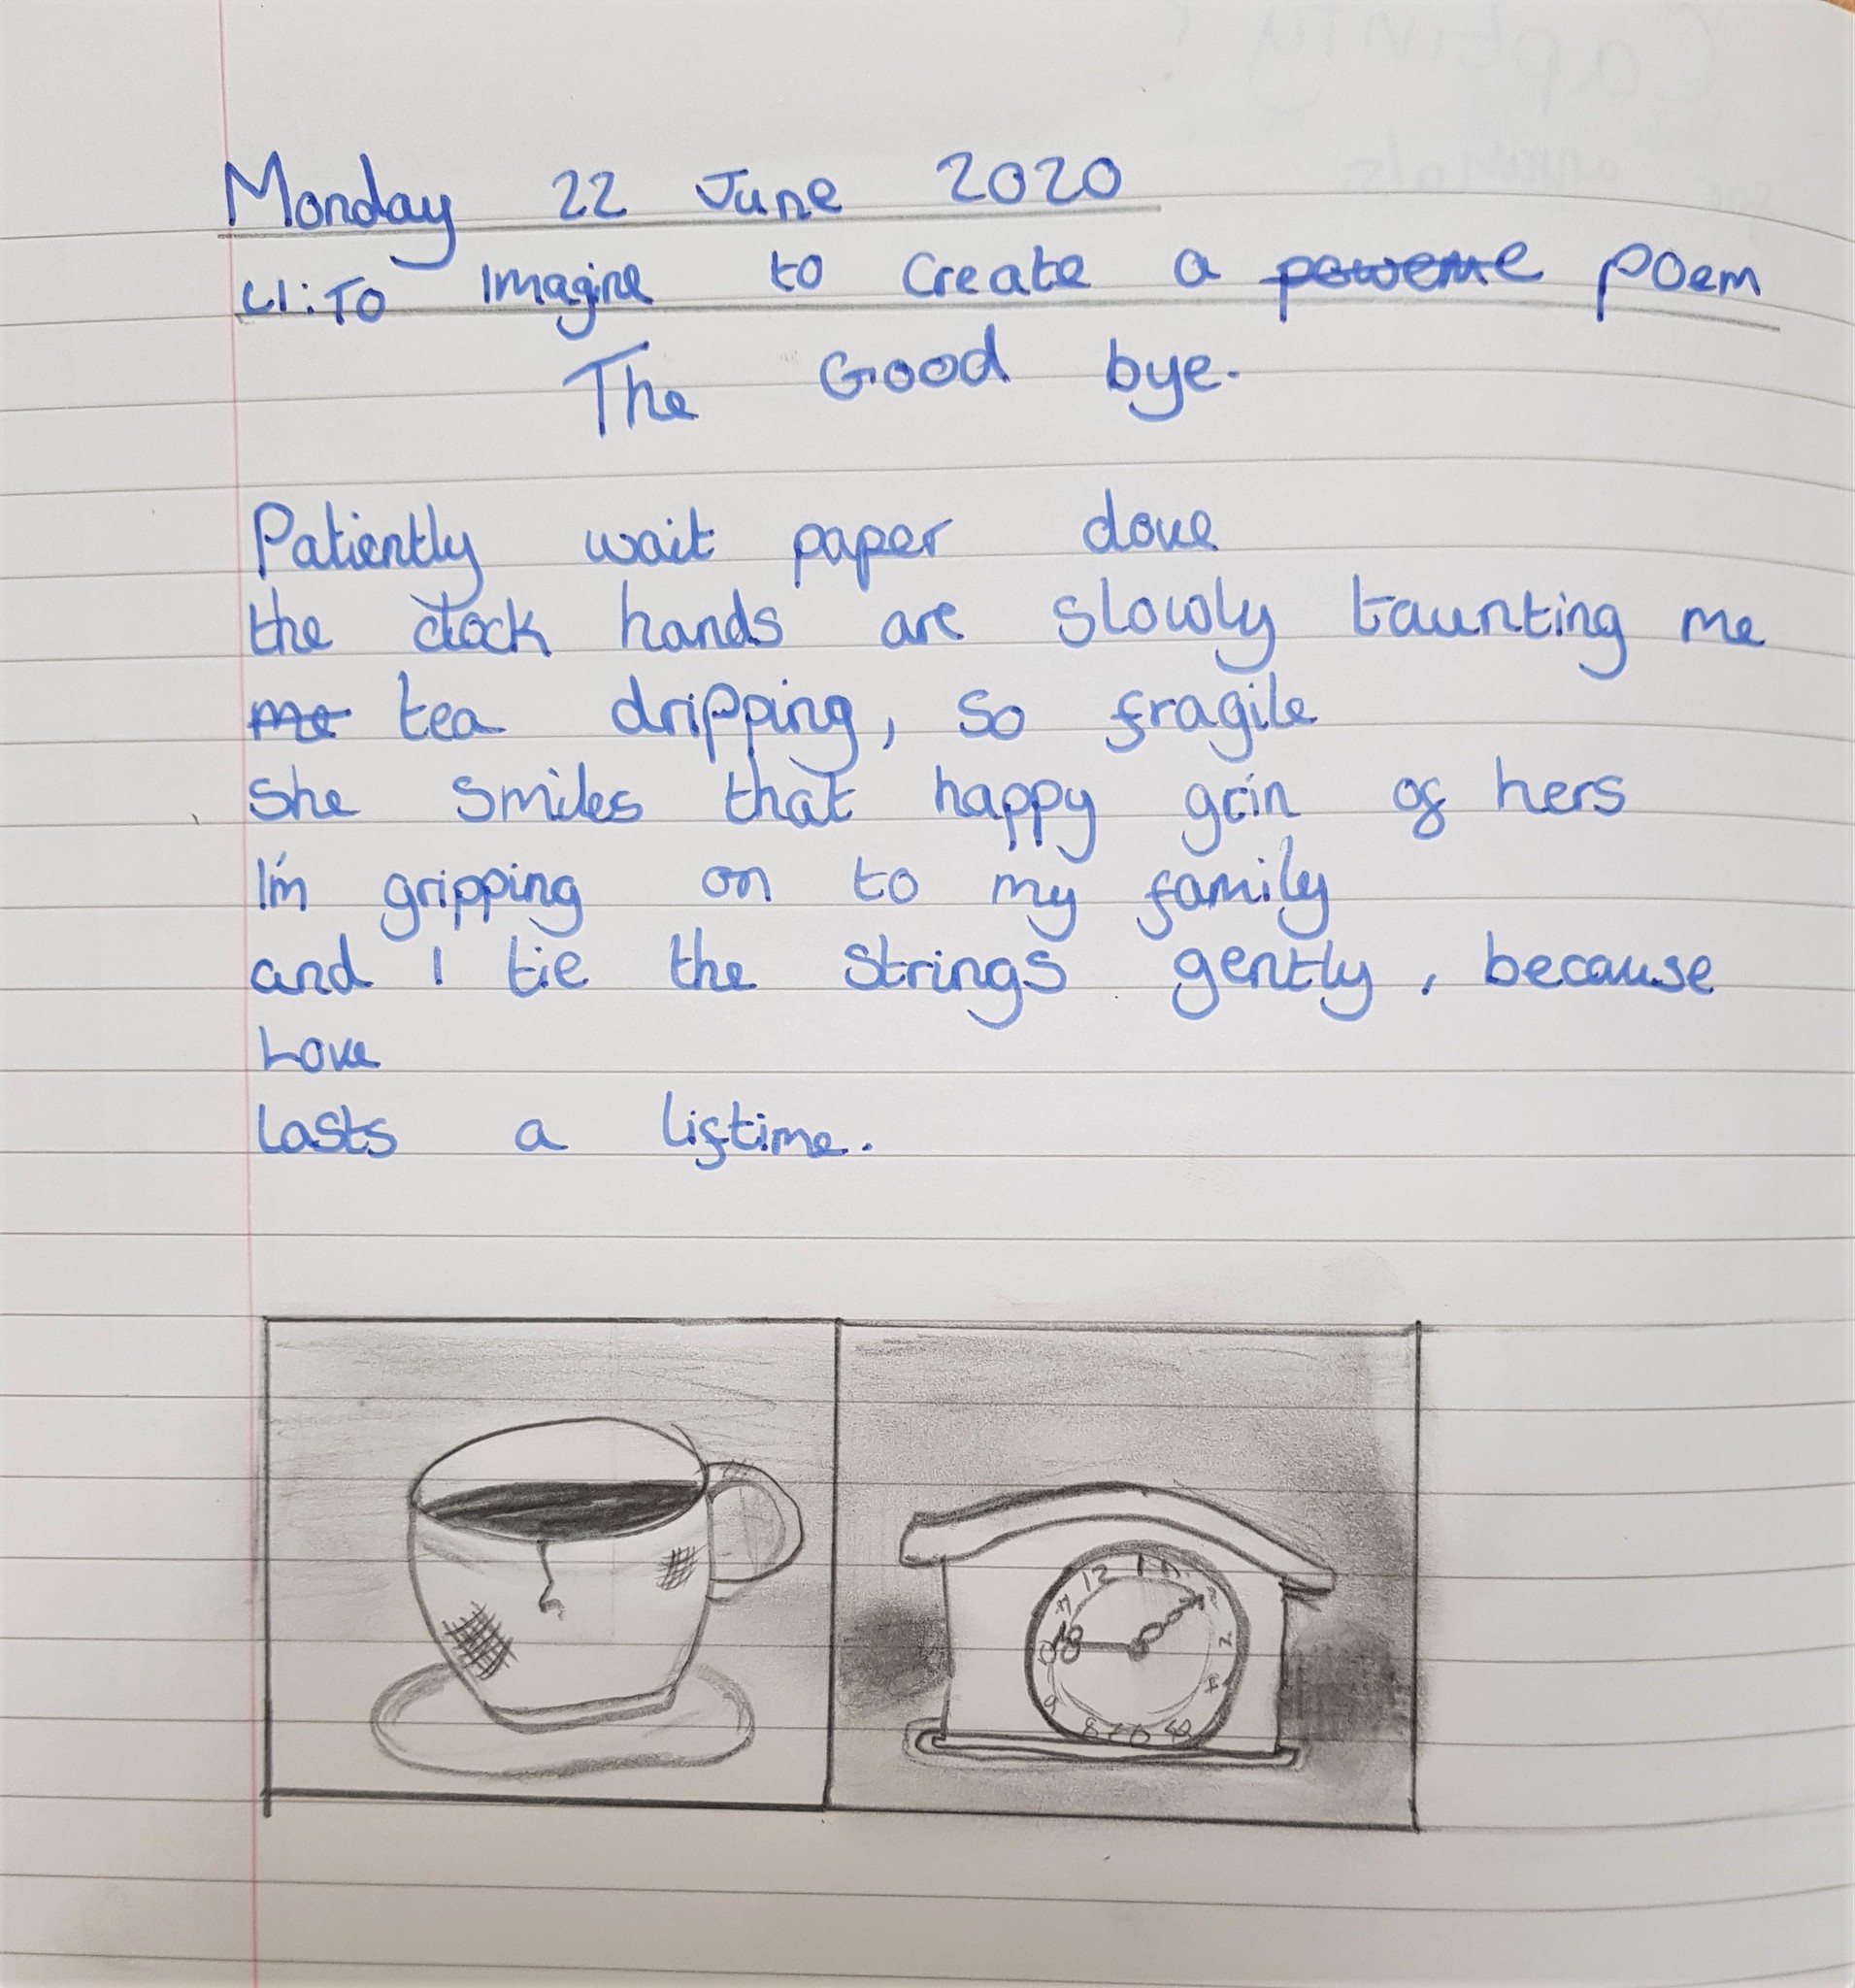 Monday 22 June 2020
LI: To imagine to create a poweme poem
The Good bye.
Patiently wait paper dove
the clock hands are slowly taunting me
me tea dripping, so fragile
she smiles that happy grin of hers
I'm gripping on to my family
and I tie the strings gently, because
Love
lasts a liftime.